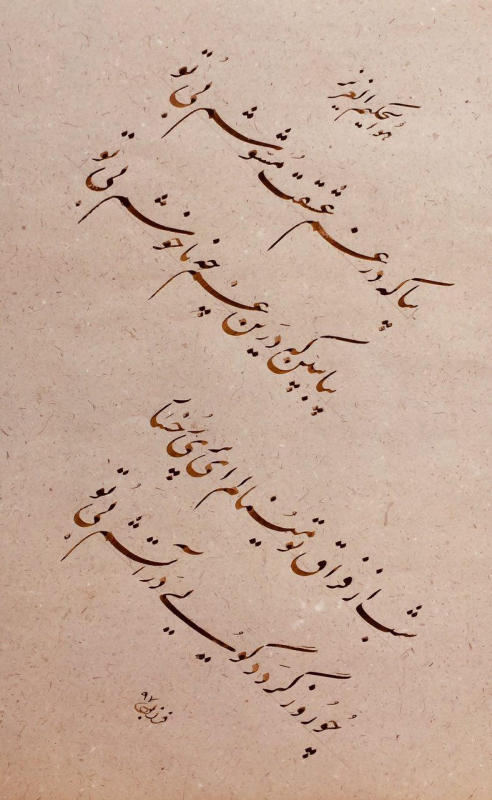 هوالحکیم العزیز
بیا که در غم عشقت مشوشم بی تو
بیا ببین که در این غم چه ناخوشم بی تو
شب از فراق تو مینالم ای پری رخسار
چو روز گردد گویی در آتشم بی تو
۹۷